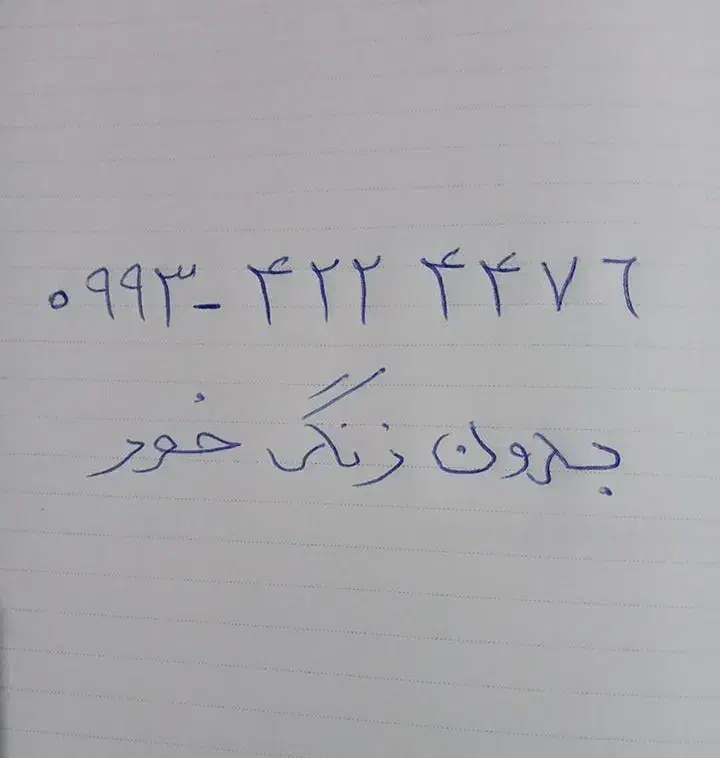 ۰۹۹۳-۴۲۲ ۴۴۷۶
بدون زنگ خور